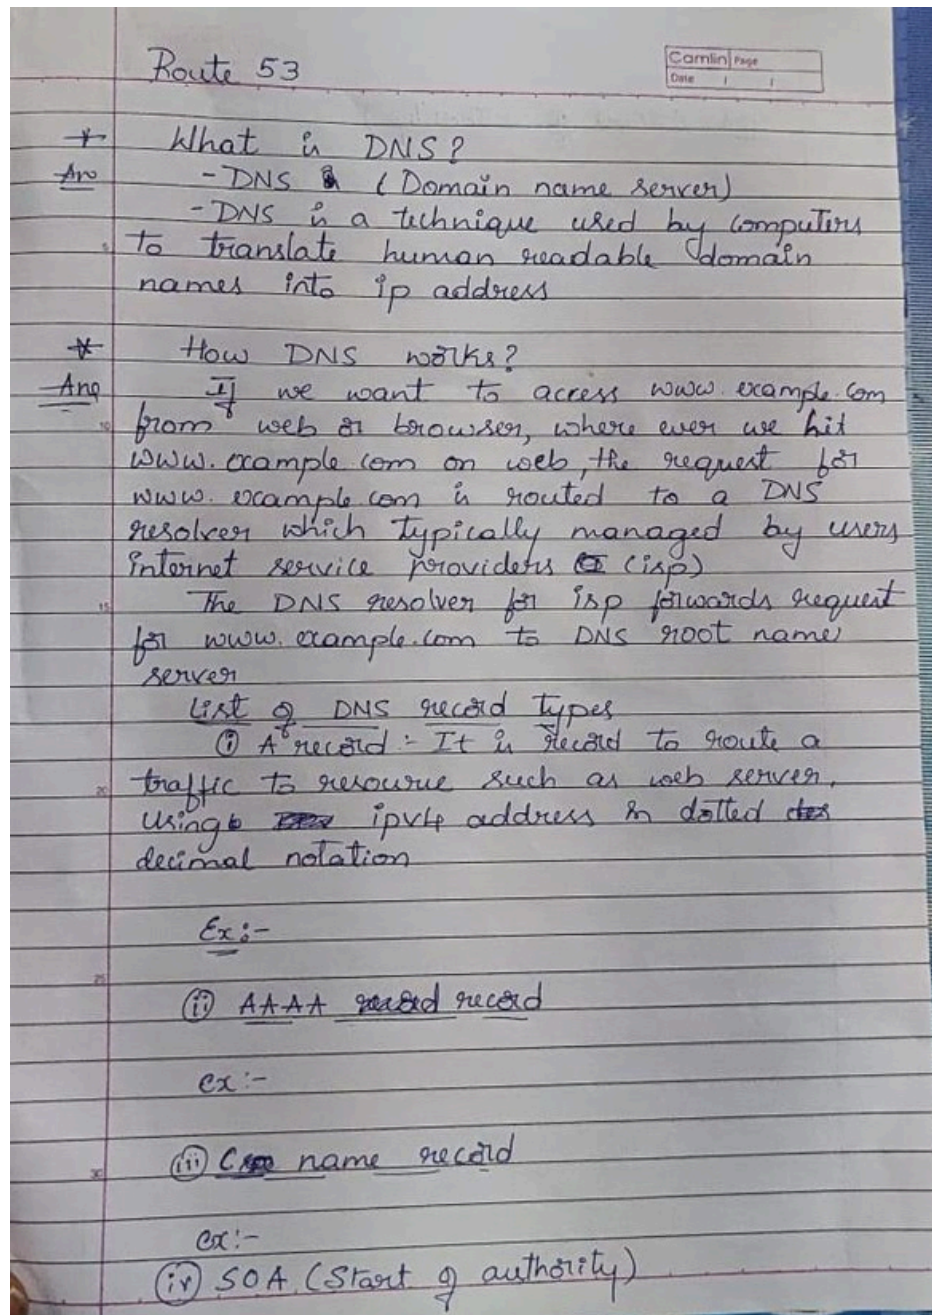 Camlin Page
Date / /
Route 53
* What is DNS?
Ans - DNS (Domain name server)
- DNS is a technique used by computers
to translate human readable domain
names into ip address
* How DNS works?
Ans If we want to access www.example.com
from web or browser, where ever we hit
www.example.com on web, the request for
www.example.com is routed to a DNS
resolver which typically managed by users
internet service providers (isp)
The DNS resolver for isp forwards request
for www.example.com to DNS root name
server
List of DNS record types
(i) A record :- It is record to route a
traffic to resource such as web server,
using ipv4 address in dotted
decimal notation
Ex:-
(ii) AAAA record
ex:-
(iii) C name record
ex:-
(iv) SOA (Start of authority)